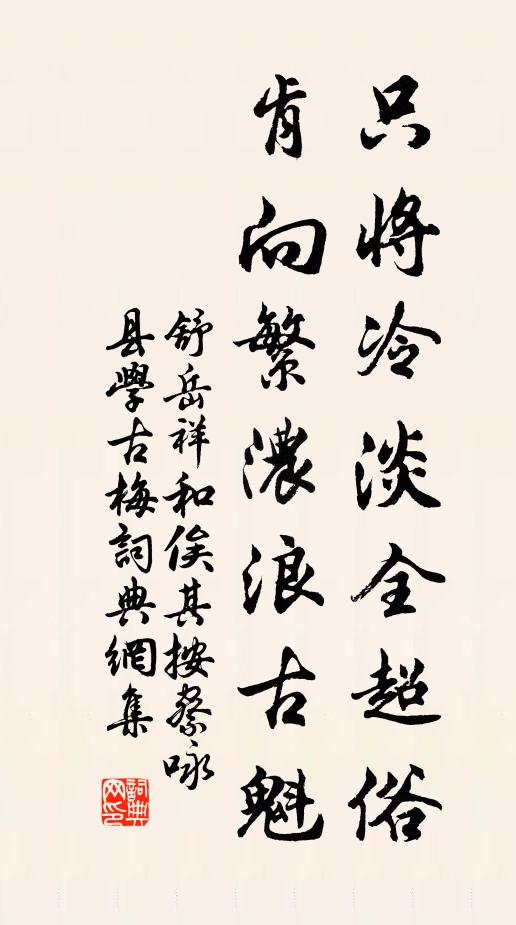 只將冷淡全超俗
肯向繁濃浪占魁
舒岳祥和俟其按察咏
县學古梅詞典網集
詞典网印